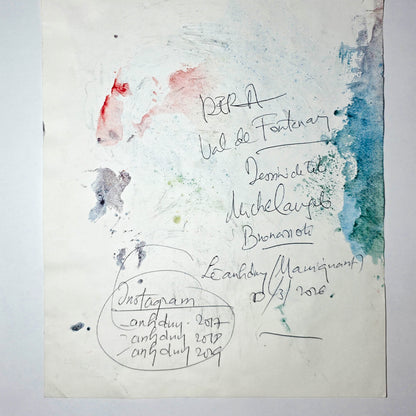 RERA
Val de Fontenay
Dessin de
Michelangelo
Buonarroti
Leanhduy
/3/2026
Instagram
_anhduy.2017
_anhduy 2018
_anhduy 2019